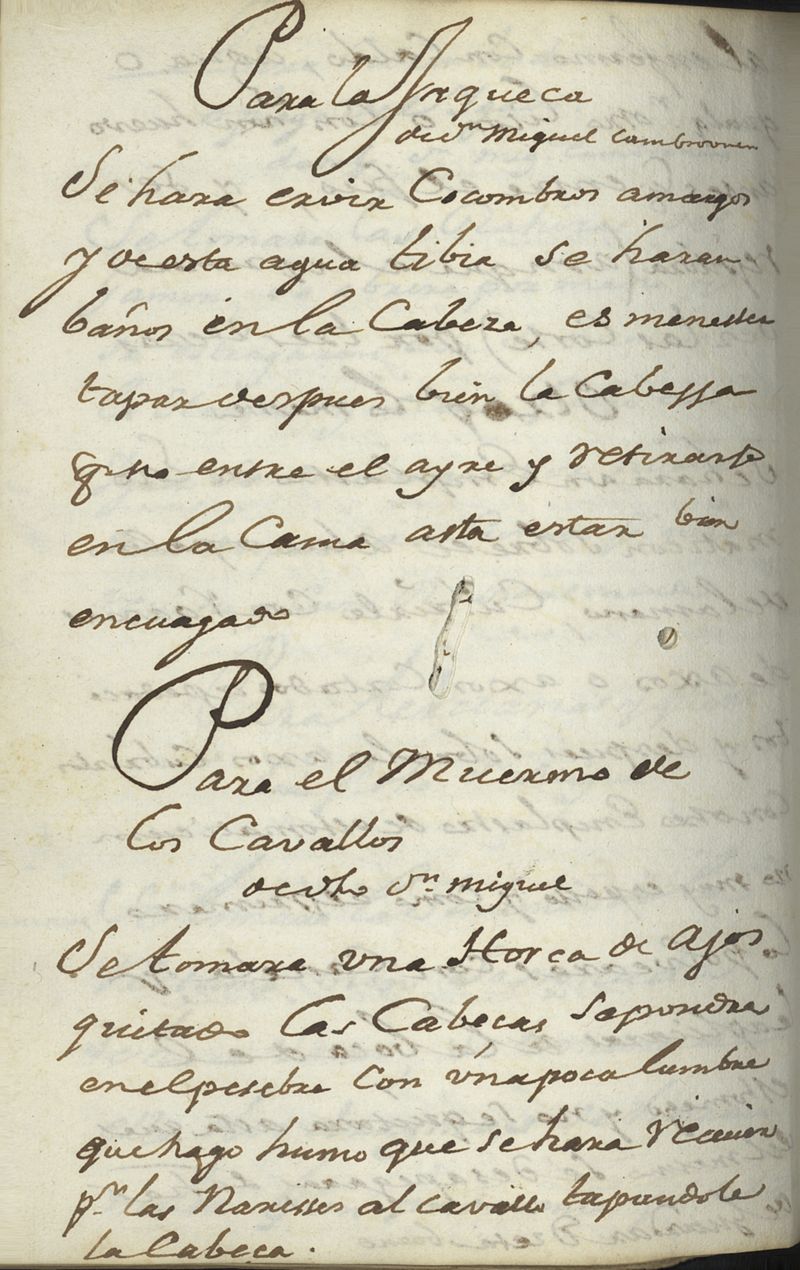 Para la Jaqueca
de dn Miguel Cambronen
Se hara ervir Cocombros amargos
y de esta agua tibia se haran
baños en la Cabeza, es menester
tapar despues bien la Cabessa
qe no entre el ayre y retirarse
en la Cama asta estar bien
enjugado
Para el Muermo de
los Cavallos
de dho dn Miguel
Se tomara una Horca de Ajos
quitado las Cabecas se pondra
en el pesebre con una poca lumbre
que hago humo que se hara recivir
pr las Narisses al cavallo tapandole
la Cabeça.